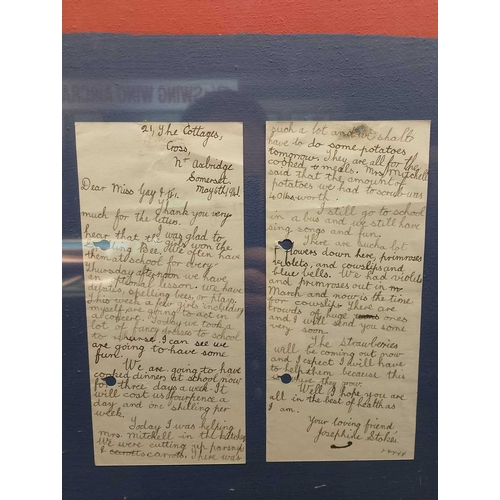 SWING WING AIRCRA
21, The Cottages,
Cross,
Nr Axbridge
Somerset.
May 5th,
Dear Miss Gay &
Thank you very
much for the letter.
I was glad to
hear that the girls won the
Spelling Bee. We often have
them at school for every
Thursday afternoon we have
an formal lesson. We have
debates, spelling bees, or plays.
This week a few girls including
myself are going to act in
a concert. Today we took a
lot of fancy dresses to school
to I can see we
are going to have some
fun.
We are going to have
cooked dinners at school now
for three days a week. It
will cost us fourpence a
day and one shilling per
week.
Today I was helping
Mrs. Mitchell in the kitchen
We were cutting up parsnips
& carrots carrots. There was
such a lot and we shall
have to do some potatoes
tomorrow. They are all for the
cooked meals. Mrs Mitchell
said that the amount of
potatoes we had to scrub was
worth.
I still go to school
in a bus and we still have
sing songs and fun.
There are such a lot
flowers down here, primroses
violets, and cowslips and
blue bells. We had violets
and primroses out in
March and now is the time
for cowslips There are
crowds of huge ones
and I will send you some
very soon.
The strawberries
will be coming out now
and I expect I will have
to help them because this
is they grow.
Well I hope you are
all in the best of health as
I am.
Your loving friend
Josephine Stokes